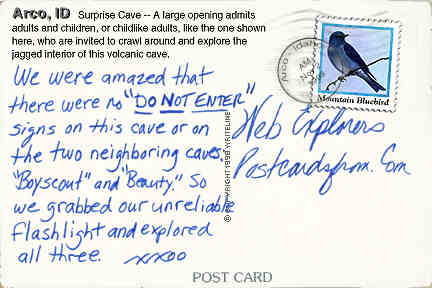 Arco, ID Surprise Cave -- A large opening admits
adults and children, or childlike adults, like the one shown
here, who are invited to crawl around and explore the
jagged interior of this volcanic cave.
We were amazed that
there were no "DO NOT ENTER"
signs on this cave or on
the two neighboring caves,
"Boyscout" and "Beauty." So
we grabbed our unreliable
flashlight and explored
all three. xxoo
© COPYRIGHT 1998 WHITELINE
Arco - Idaho
AM
Nov
Mountain Bluebird
Web Explorers
Postcardsfrom.Com
POST CARD